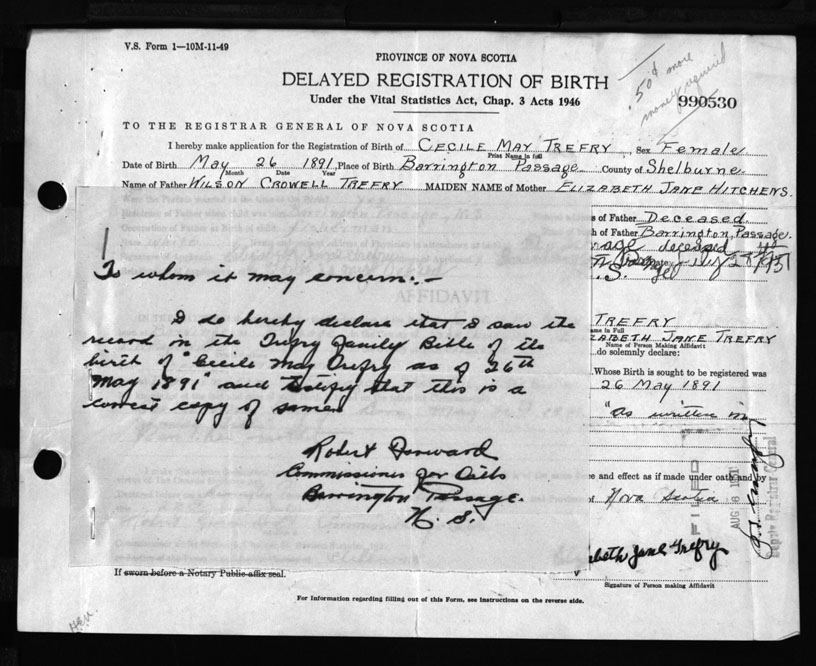 V.S. Form 1—10M-11-49
PROVINCE OF NOVA SCOTIA
DELAYED REGISTRATION OF BIRTH
Under the Vital Statistics Act, Chap. 3 Acts 1946
.50¢ more
money required
990530
TO THE REGISTRAR GENERAL OF NOVA SCOTIA
I hereby make application for the Registration of Birth of CECILE MAY TREFRY, Sex Female
Print Name in full
Date of Birth May 26 1891, Place of Birth Barrington Passage County of Shelburne
Month Date Year
Name of Father WILSON CROWELL TREFRY MAIDEN NAME of Mother ELIZABETH JANE HITCHENS.
s of Father Deceased
h of Father Barrington Passage.
deceased
AFFIDAVIT
To whom it may concern:—
I do hereby declare that I saw the
record in the Trefry Family Bible of the
birth of "Cecile May Trefry as of 26th
May 1891" and testify that this is a
correct copy of same
Robert Forward
Commissioner for Oaths
Barrington Passage.
N. S.
TREFRY
ame in Full
ZABETH JANE TREFRY
Name of Person Making Affidavit
do solemnly declare:
Whose Birth is sought to be registered was
26 May 1891
"as written in
e and effect as if made under oath and by
of Nova Scotia
FILED
AUG 6 1951
Deputy Registrar General
abeth Jane Trefry
Signature of Person making Affidavit
If sworn before a Notary Public affix seal.
For Information regarding filling out of this Form, see instructions on the reverse side.